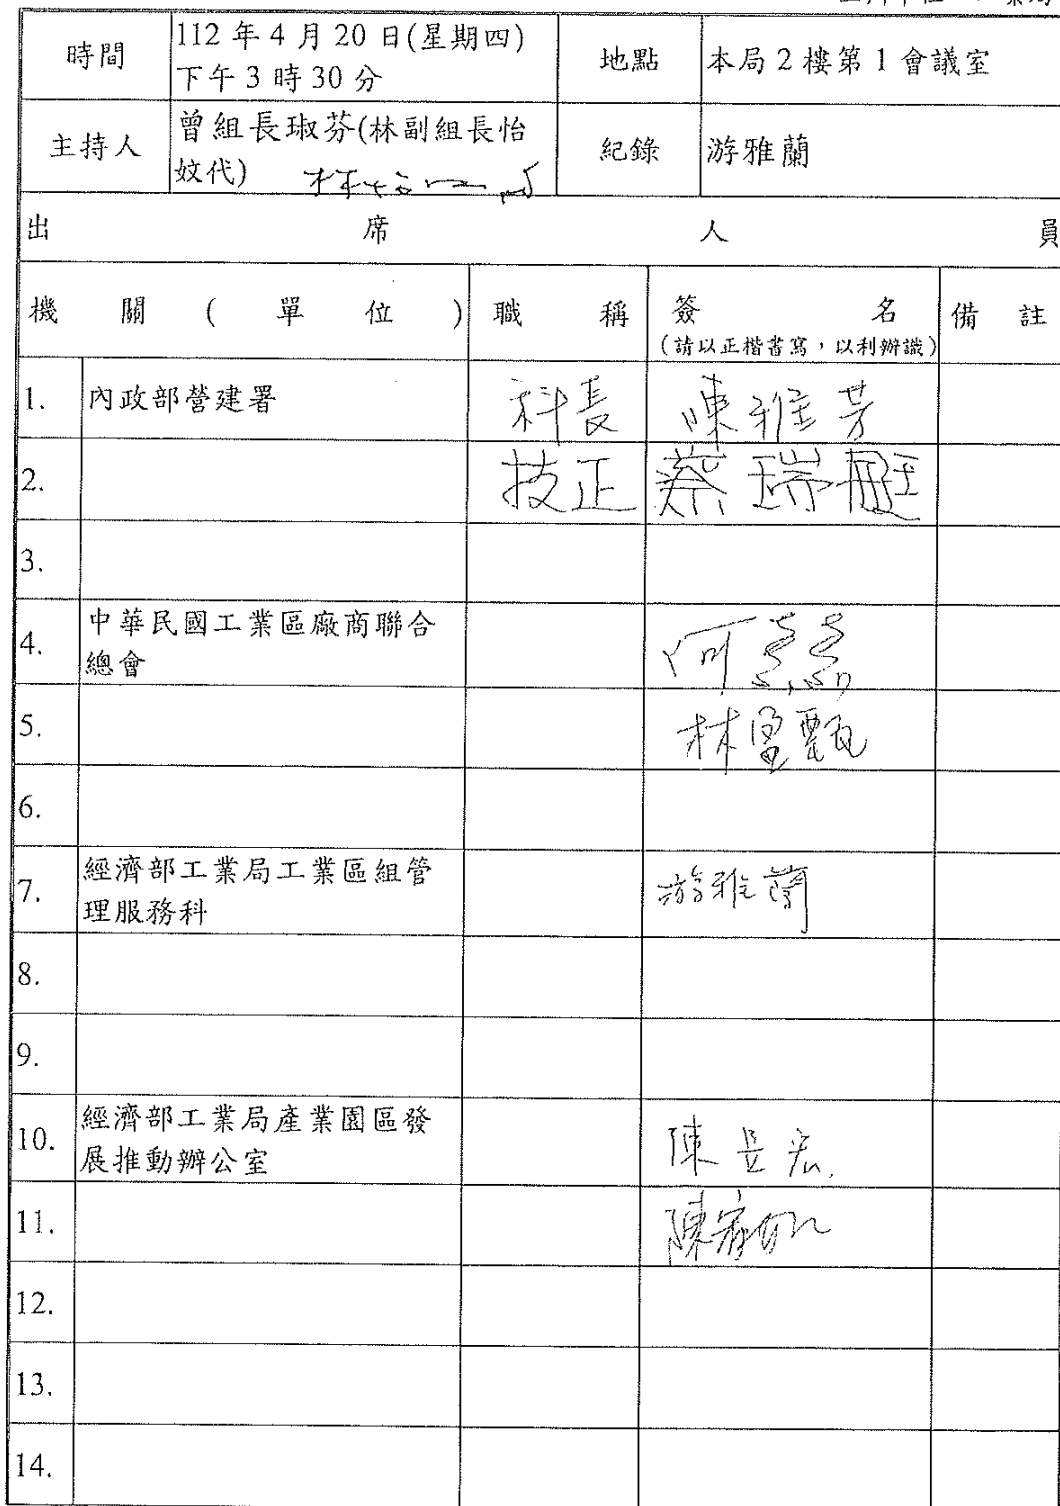 時間
112 年 4 月 20 日(星期四)
下午 3 時 30 分
地點
本局 2 樓第 1 會議室
主持人
曾組長琡芬(林副組長怡
妏代)
紀錄
游雅蘭
出席人員
機關(單位)
職稱
簽名
(請以正楷書寫,以利辨識)
備註
1.
內政部營建署
科長
陳雅芳
2.
技正
蔡瑞
3.
4.
中華民國工業區廠商聯合
總會
何
5.
林
6.
7.
經濟部工業局工業區組管
理服務科
游雅蘭
8.
9.
10.
經濟部工業局產業園區發
展推動辦公室
陳宏
11.
陳
12.
13.
14.